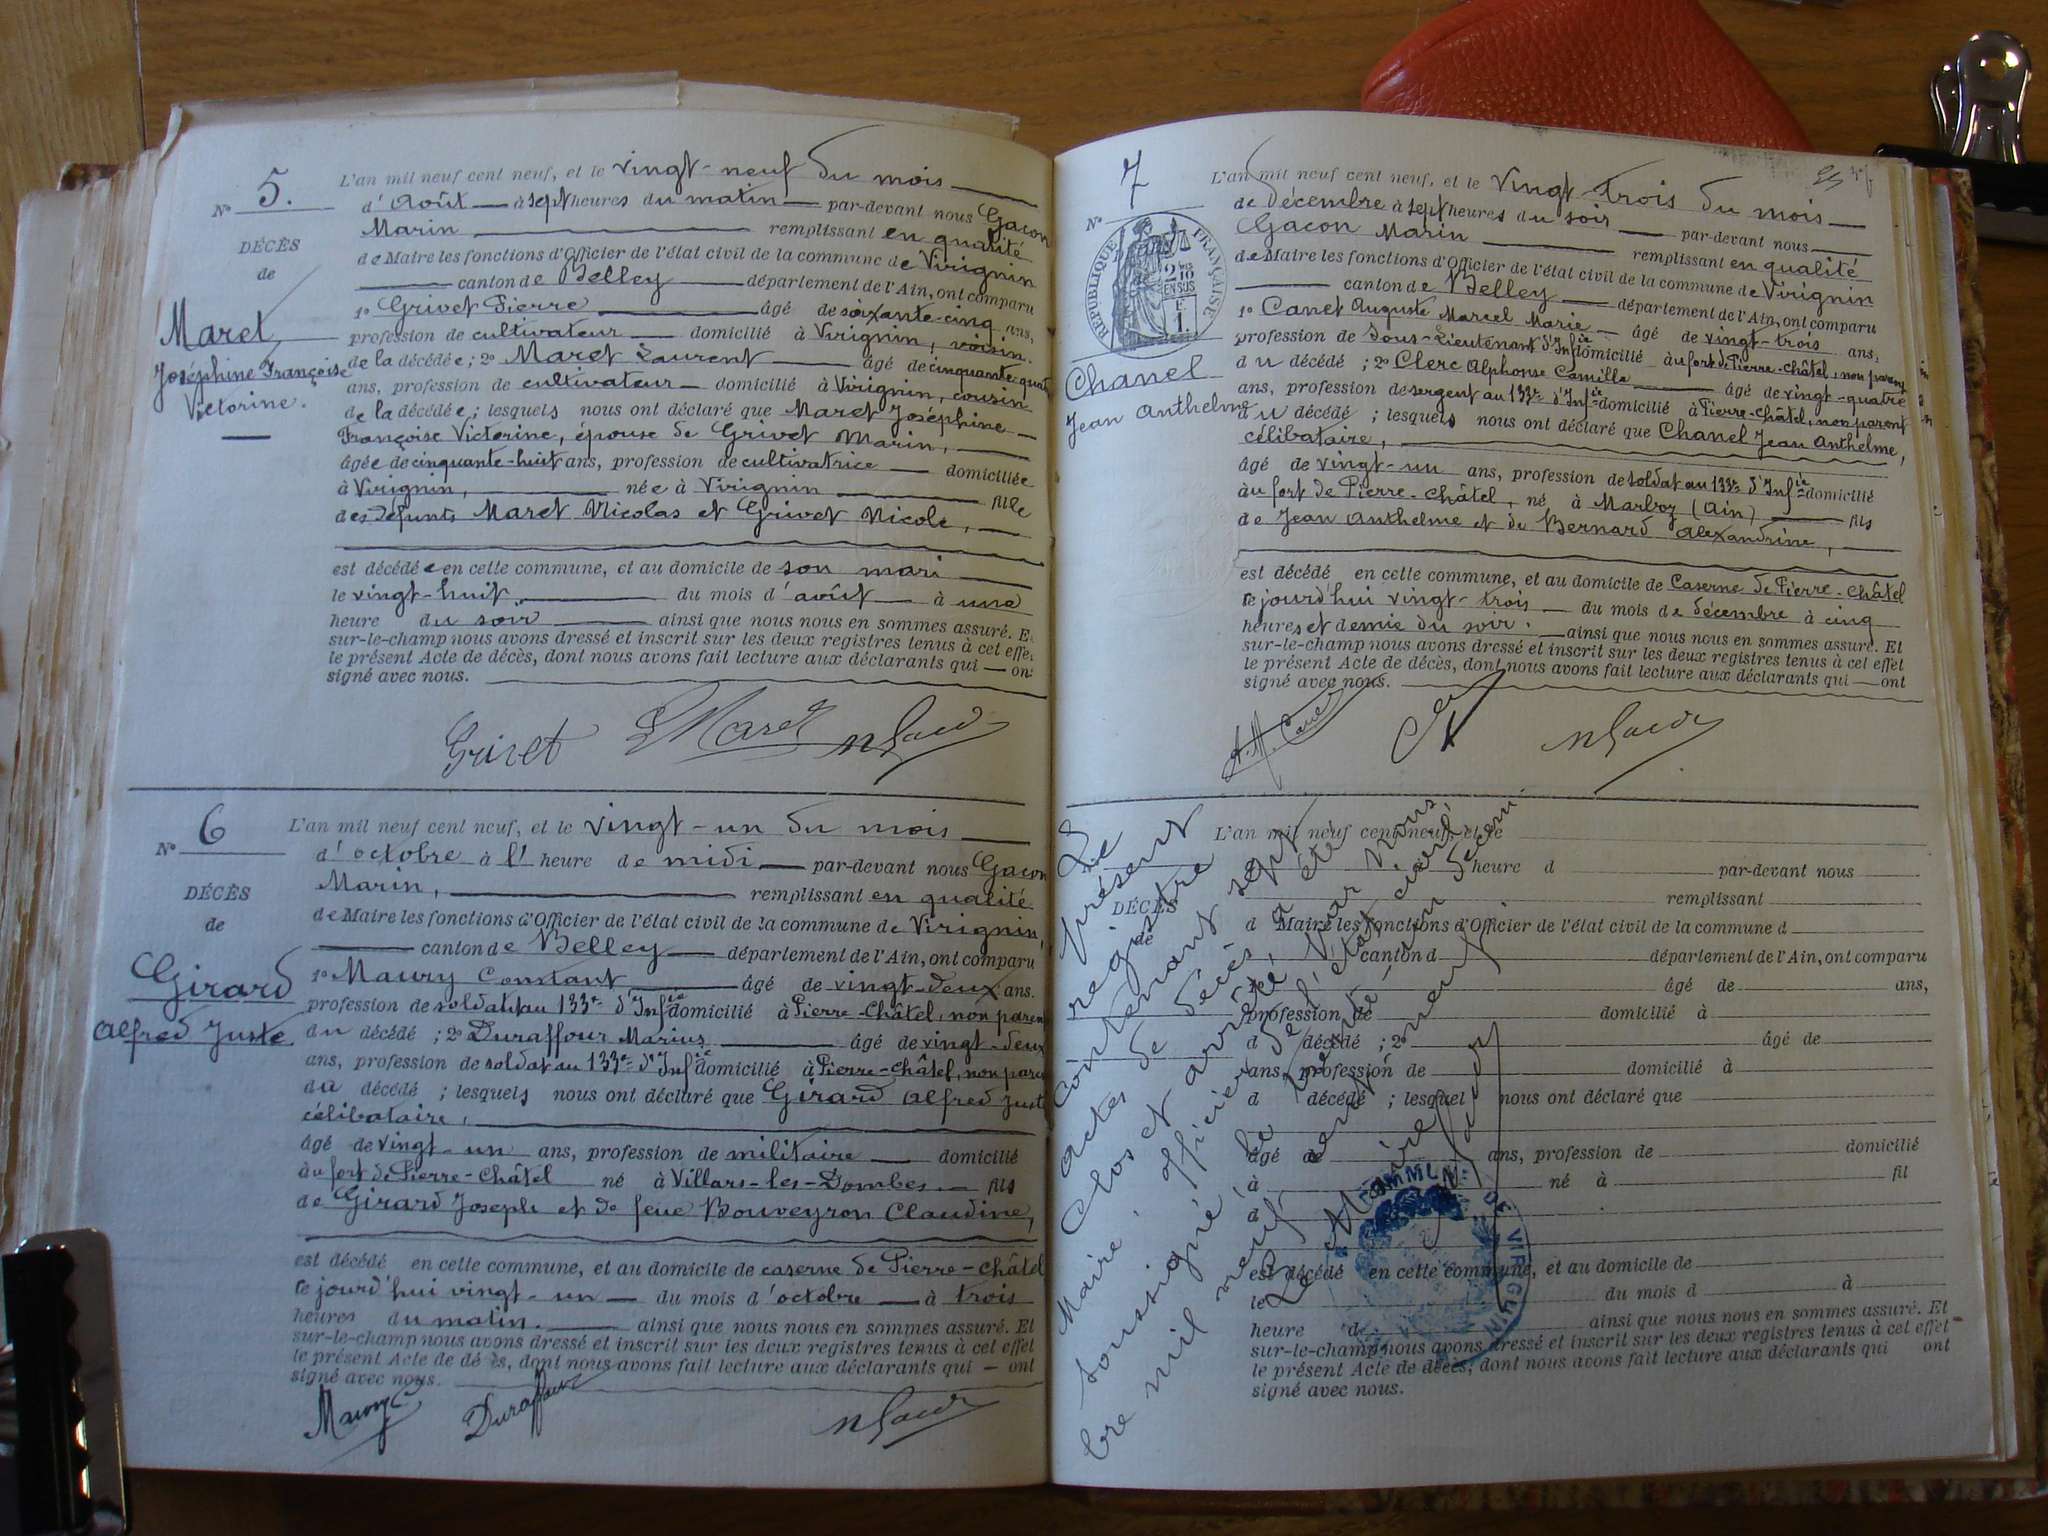 N° 5.
DÉCÈS
de
Maret
Joséphine Françoise
Victorine.
L'an mil neuf cent neuf, et le vingt-neuf du mois
d'Août à sept heures du matin par-devant nous Gacon
Marin remplissant en qualité
de Maire les fonctions d'Officier de l'état civil de la commune de Virignin
canton de Belley département de l'Ain, ont comparu
1° Grivet Pierre âgé de soixante-cinq ans,
profession de cultivateur domicilié à Virignin, voisin
de la décédée; 2° Maret Laurent âgé de cinquante-quat
ans, profession de cultivateur domicilié à Virignin, cousin
de la décédée; lesquels nous ont déclaré que Maret Joséphine
Françoise Victorine, épouse de Grivet Marin,
âgée de cinquante-huit ans, profession de cultivatrice domiciliée
à Virignin, née à Virignin fille
des défunts Maret Nicolas et Grivet Nicole,
est décédée en cette commune, et au domicile de son mari
le vingt-huit du mois d'août à une
heure du soir ainsi que nous nous en sommes assuré. Et
sur-le-champ nous avons dressé et inscrit sur les deux registres tenus à cet effet
le présent Acte de décès, dont nous avons fait lecture aux déclarants qui ont
signé avec nous.
Grivet L Maret M Gacon
N° 6
DÉCÈS
de
Girard
Alfred Juste
L'an mil neuf cent neuf, et le vingt-un du mois
d'octobre à l'heure de midi par-devant nous Gacon
Marin, remplissant en qualité
de Maire les fonctions d'Officier de l'état civil de la commune de Virignin,
canton de Belley département de l'Ain, ont comparu
1° Maury Constant âgé de vingt-deux ans.
profession de soldat au 133e d'Infie domicilié à Pierre-Châtel, non paren
du décédé; 2° Duraffour Marius âgé de vingt-deux
ans, profession de soldat au 133e d'Infie domicilié à Pierre-Châtel, non pare
du décédé; lesquels nous ont déclaré que Girard Alfred Just
célibataire,
âgé de vingt-un ans, profession de militaire domicilié
au fort de Pierre-Châtel né à Villars-les-Dombes fils
de Girard Joseph et de feue Bouveyron Claudine,
est décédé en cette commune, et au domicile de caserne de Pierre-Châtel
ce jourd'hui vingt-un du mois d'octobre à trois
heures du matin. ainsi que nous nous en sommes assuré. Et
sur-le-champ nous avons dressé et inscrit sur les deux registres tenus à cet effet
le présent Acte de dé ès, dont nous avons fait lecture aux déclarants qui ont
signé avec nous.
Maury Duraffour M Gacon
N° 7
RÉPUBLIQUE FRANÇAISE
2/10 EN SUS
1F.
Chanel
Jean Anthelme
L'an mil neuf cent neuf, et le vingt-trois du mois
de décembre à sept heures du soir par-devant nous
Gacon Marin remplissant en qualité
de Maire les fonctions d'Officier de l'état civil de la commune de Virignin
canton de Belley département de l'Ain, ont comparu
1° Canet Auguste Marcel Marie âgé de vingt-trois ans,
profession de Sous-Lieutenant d'Infie domicilié au fort de Pierre-Châtel, non parent
du décédé; 2° Clerc Alphonse Camille âgé de vingt-quatre
ans, profession de sergent au 133e d'Infie domicilié à Pierre-Châtel, non parent
du décédé; lesquels nous ont déclaré que Chanel Jean Anthelme,
célibataire,
âgé de vingt-un ans, profession de soldat au 133e d'Infie domicilié
au fort de Pierre-Châtel, né à Marboz (Ain) fils
de Jean Anthelme et de Bernard Alexandrine,
est décédé en cette commune, et au domicile de Caserne de Pierre-Châtel
ce jourd'hui vingt-trois du mois de décembre à cinq
heures et demie du soir. ainsi que nous nous en sommes assuré. Et
sur-le-champ nous avons dressé et inscrit sur les deux registres tenus à cet effet
le présent Acte de décès, dont nous avons fait lecture aux déclarants qui ont
signé avec nous.
A. M. Canet M Gacon
DÉCÈS
de
L'an mil neuf cent neuf, et le
heure d par-devant nous
remplissant
d Maire les fonctions d'Officier de l'état civil de la commune d
canton d département de l'Ain, ont comparu
âgé de ans,
profession de domicilié à
d décédé; 2° âgé de
ans, profession de domicilié à
d décédé; lesquel nous ont déclaré que
âgé de ans, profession de domicilié
à né à fil
d
est décédé en cette commune, et au domicile de
le du mois d à
heure d ainsi que nous nous en sommes assuré. Et
sur-le-champ nous avons dressé et inscrit sur les deux registres tenus à cet effet
le présent Acte de décès, dont nous avons fait lecture aux déclarants qui ont
signé avec nous.
Le présent registre
contenant sept
actes de décès a été
clos et arrêté par Nous,
Maire, officier de l'état civil
soussigné le trente-un décem
bre mil neuf cent neuf
Le Maire
M Gacon
COMMUNE DE VIRIGNIN